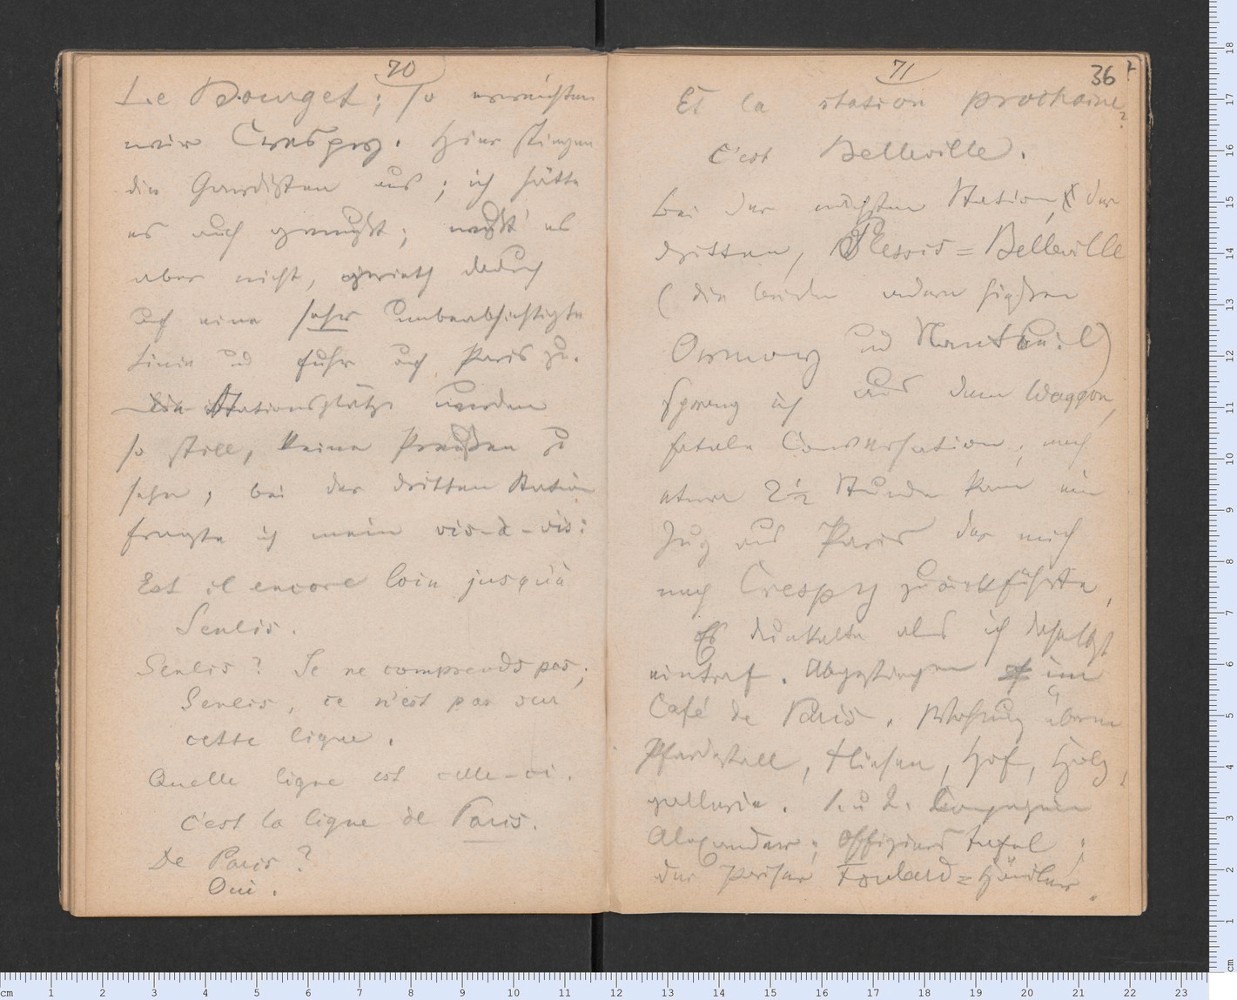 70
Le Bourget; so erreichten
wir Crespy. Hier stiegen
die Gardisten aus; ich hätte
es auch gemußt; wußt' es
aber nicht, gerieth dadurch
auf eine sehr unbeabsichtigte
Linie und fuhr auf Paris zu.
Die Stationsplätze wurden
so still, keine Preußen zu
sehn; bei der dritten Station
fragte ich mein vis-à-vis:
Est il encore loin jusqu'à
Senlis.
Senlis? Je ne comprends pas;
Senlis, ce n'est pas sur
cette ligne.
Quelle ligne est celle-ci.
C'est la ligne de Paris.
De Paris?
Oui.
71
36
Et la station prochaine?
C'est Belleville.
Bei der nächsten Station, der
dritten, Plessis=Belleville
(die beiden andern hießen
Ormoy und Nanteuil)
sprang ich aus dem Waggon,
fatale Conversation; nach
etwa 2½ Stunde kam ein
Zug aus Paris der mich
nach Crespy zurückführte.
Es dunkelte als ich daselbst
eintraf. Abgestiegen im
Café de Paris. Wohnung überm
Pferdestall, Fliesen, Hof, Holz
gallerie. 1. u 2. Compagnie
Alexander; Offiziers Tafel;
der Pariser Foulard=Händler.